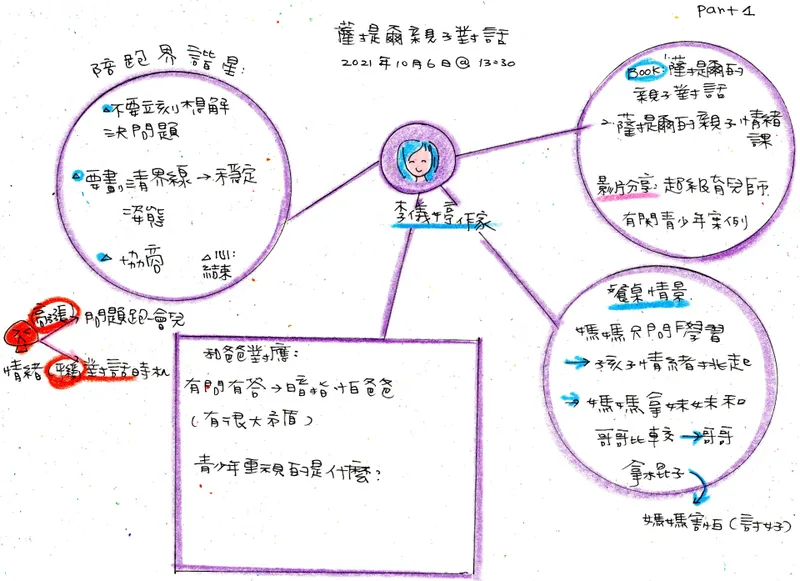 Part 1
薩提爾親子對話
2021年10月6日@ 13:30
陪跑界諧星:
不要立刻想解
決問題
要劃清界線→不穩定
姿態
協商
心:
結束
Book:薩提爾的
親子對話
薩提爾的親子情緒
課
影片分享:超級育兒師
有關青少年案例
李儀婷作家
高漲→問題跑一會兒
情緒 平穩 對話時機
和爸對應:
有問有答→暗指怕爸爸
(有很大矛盾)
青少年重視的是什麼?
餐桌情景
媽媽只問學習
→孩子情緒挑起
→媽媽拿妹妹和
哥哥比較→哥哥
拿棍子
媽媽害怕(討好)